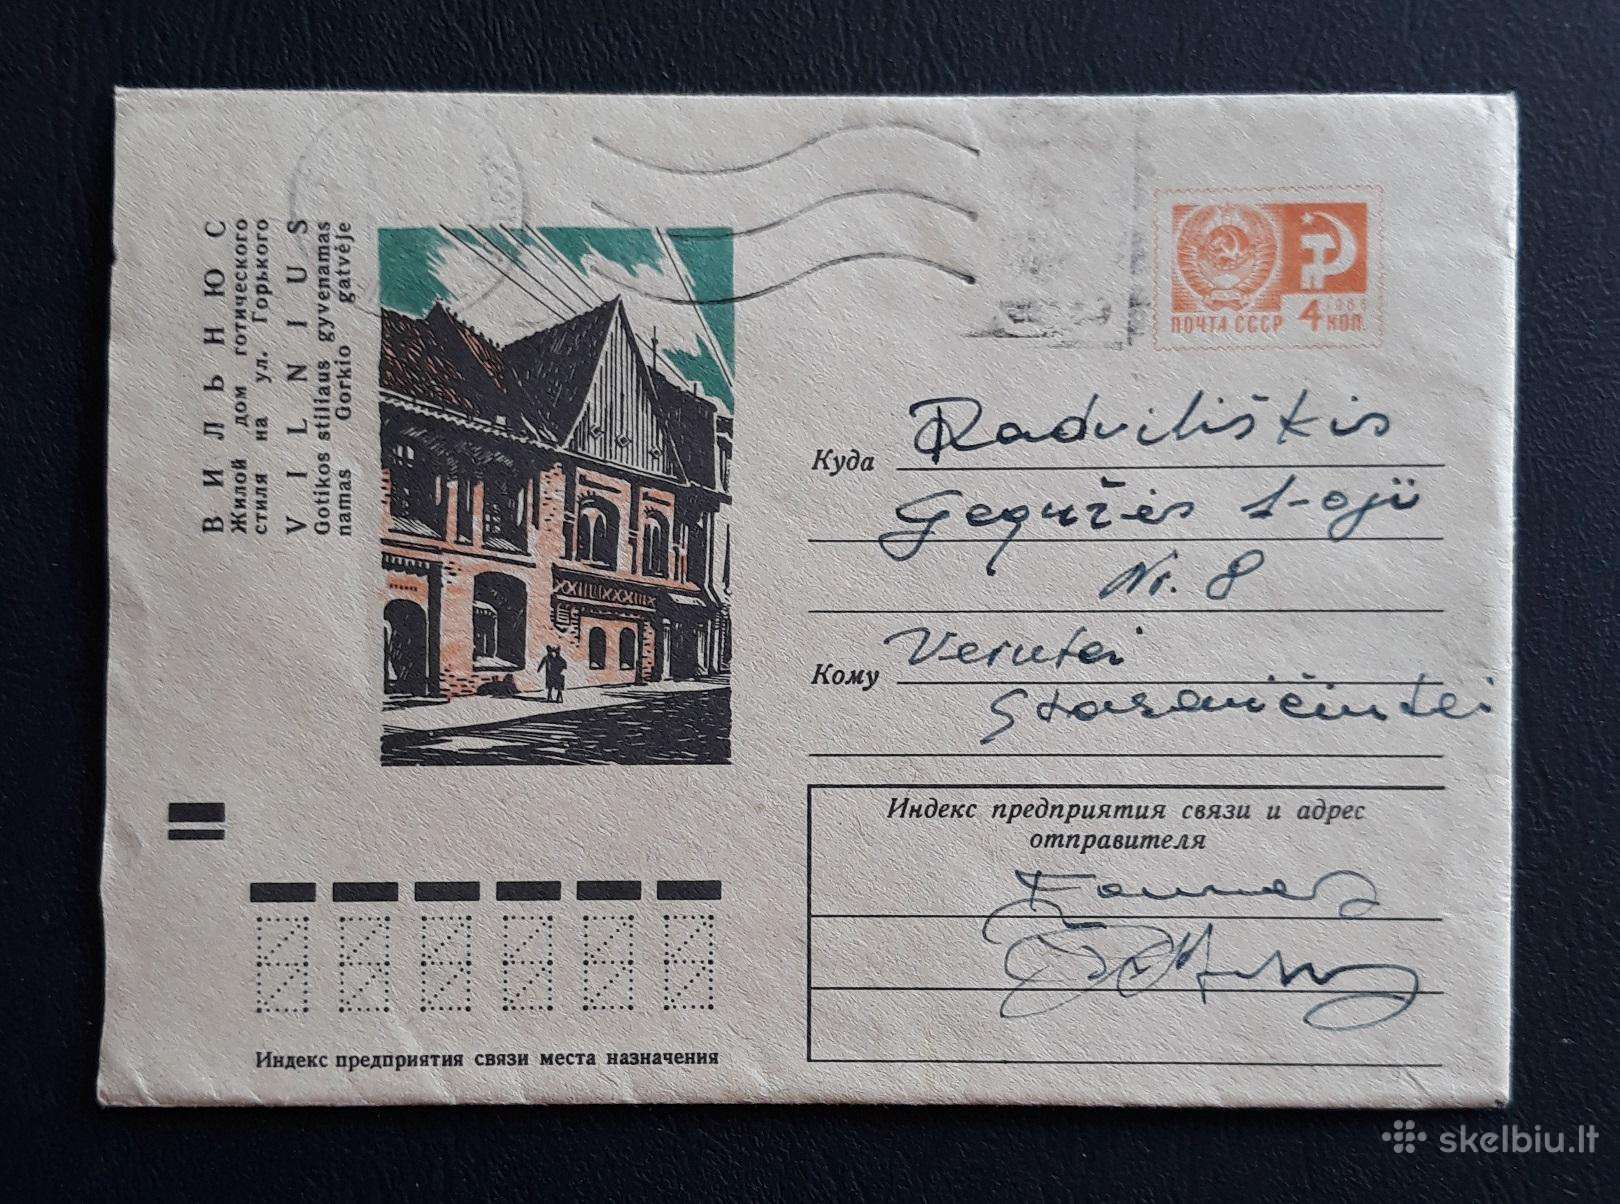 ВИЛЬНЮС
Жилой дом готического
стиля на ул. Горького
VILNIUS
Gotikos stiliaus gyvenamas
namas Gorkio gatvėje
1966
ПОЧТА СССР 4 КОП.
Куда Radviliškis
Gegužės 1-oji
Nr. 8
Кому Verutei
Индекс предприятия связи и адрес
отправителя
Kaunas
Индекс предприятия связи места назначения
skelbiu.lt